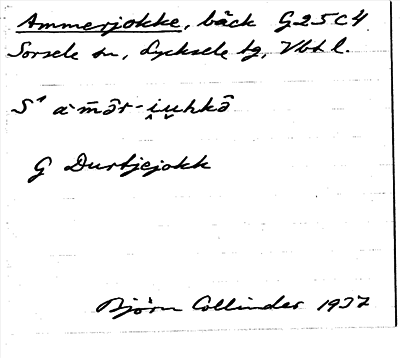 Ammerjokke, bäck G25C4
Sorsele sn, Lycksele tg, Vbtl l.
S¹ a·m̄ōr-i̭u̯hkō
G Durtjejokk
Björn Collinder 1937